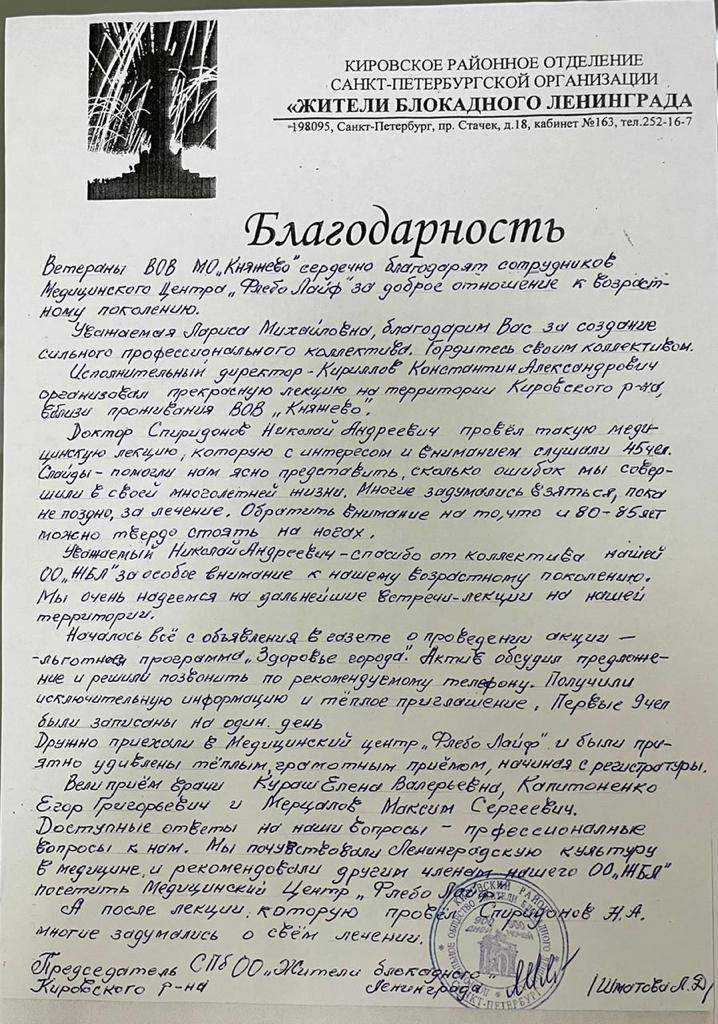 КИРОВСКОЕ РАЙОННОЕ ОТДЕЛЕНИЕ
САНКТ-ПЕТЕРБУРГСКОЙ ОРГАНИЗАЦИИ
«ЖИТЕЛИ БЛОКАДНОГО ЛЕНИНГРАДА
198095, Санкт-Петербург, пр. Стачек, д.18, кабинет №163, тел.252-16-7
Благодарность
Ветераны ВОВ МО „Княжево" сердечно благодарят сотрудников
Медицинского Центра „Флебо Лайф" за доброе отношение к возраст-
ному поколению.
Уважаемая Лариса Михайловна, благодарим Вас за создание
сильного профессионального коллектива. Гордитесь своим коллективом.
Исполнительный директор - Кириллов Константин Александрович
организовал прекрасную лекцию на территории Кировского р-на,
вблизи проживания ВОВ „Княжево".
Доктор Спиридонов Николай Андреевич провёл такую меди-
цинскую лекцию, которую с интересом и вниманием слушали 45 чел.
Слайды - помогли нам ясно представить, сколько ошибок мы совер-
шили в своей многолетней жизни. Многие задумались взяться, пока
не поздно, за лечение. Обратить внимание на то, что и 80-85 лет
можно твердо стоять на ногах.
Уважаемый Николай Андреевич - спасибо от коллектива нашей
ОО „ЖБЛ" за особое внимание к нашему возрастному поколению.
Мы очень надеемся на дальнейшие встречи-лекции на нашей
территории.
Началось всё с объявления в газете о проведении акции —
-льготная программа „Здоровье города". Актив обсудил предложе-
ние и решили позвонить по рекомендуемому телефону. Получили
исключительную информацию и тёплое приглашение. Первые 9 чел
были записаны на один день
Дружно приехали в Медицинский центр „Флебо Лайф" и были при-
ятно удивлены тёплым, грамотным приёмом, начиная с регистратуры.
Вели приём врачи Кураш Елена Валерьевна, Капитоненко
Егор Григорьевич и Мерцалов Максим Сергеевич.
Доступные ответы на наши вопросы - прфессионалные
вопросы к нам. Мы почувствовали Ленинградскую культуру
в медицине, и рекомендовали другим членам нашего ОО „ЖБЛ"
посетить Медицинский Центр „Флебо Лайф"
А после лекции, которую провёл Спиридонов Н.А.
многие задумались о свём лечении.
Председатель СПб ОО „Жители блокадного
Кировского р-на Ленинграда /Шматова Л.Д/
КИРОВСКИЙ РАЙОН
900 ДНЕЙ 900 НОЧЕЙ
САНКТ-ПЕТЕРБУРГ